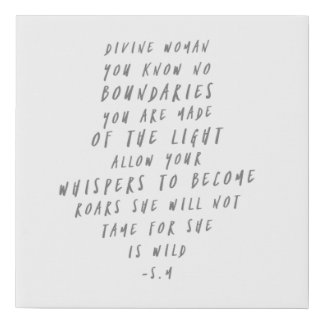 DIVINE WOMAN
YOU KNOW NO
BOUNDARIES
YOU ARE MADE
OF THE LIGHT
ALLOW YOUR
WHISPERS TO BECOME
ROARS SHE WILL NOT
TAME FOR SHE
IS WILD
-S.M